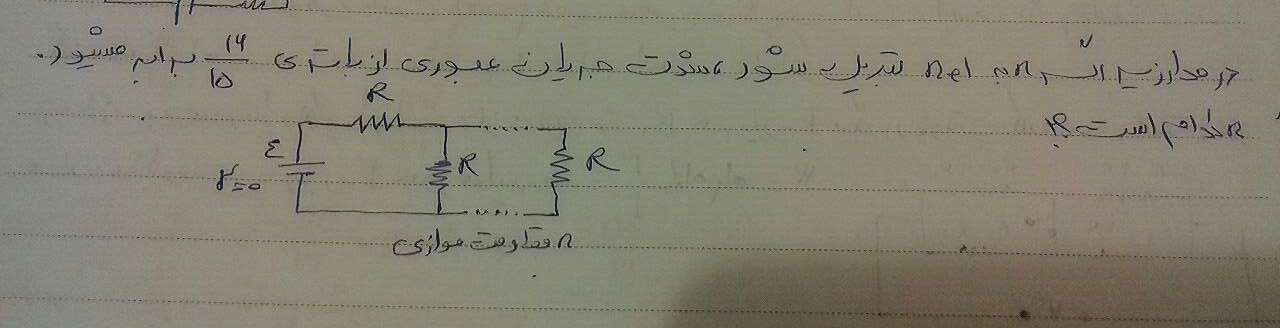 در مدار زیر اگر n به n+1 تبدیل شود، شدت جریان عبوری از باتری ۱۶/۱۵ برابر میشود.
n کدام است؟
R
ε
r=0
R
R
n مقاومت موازی